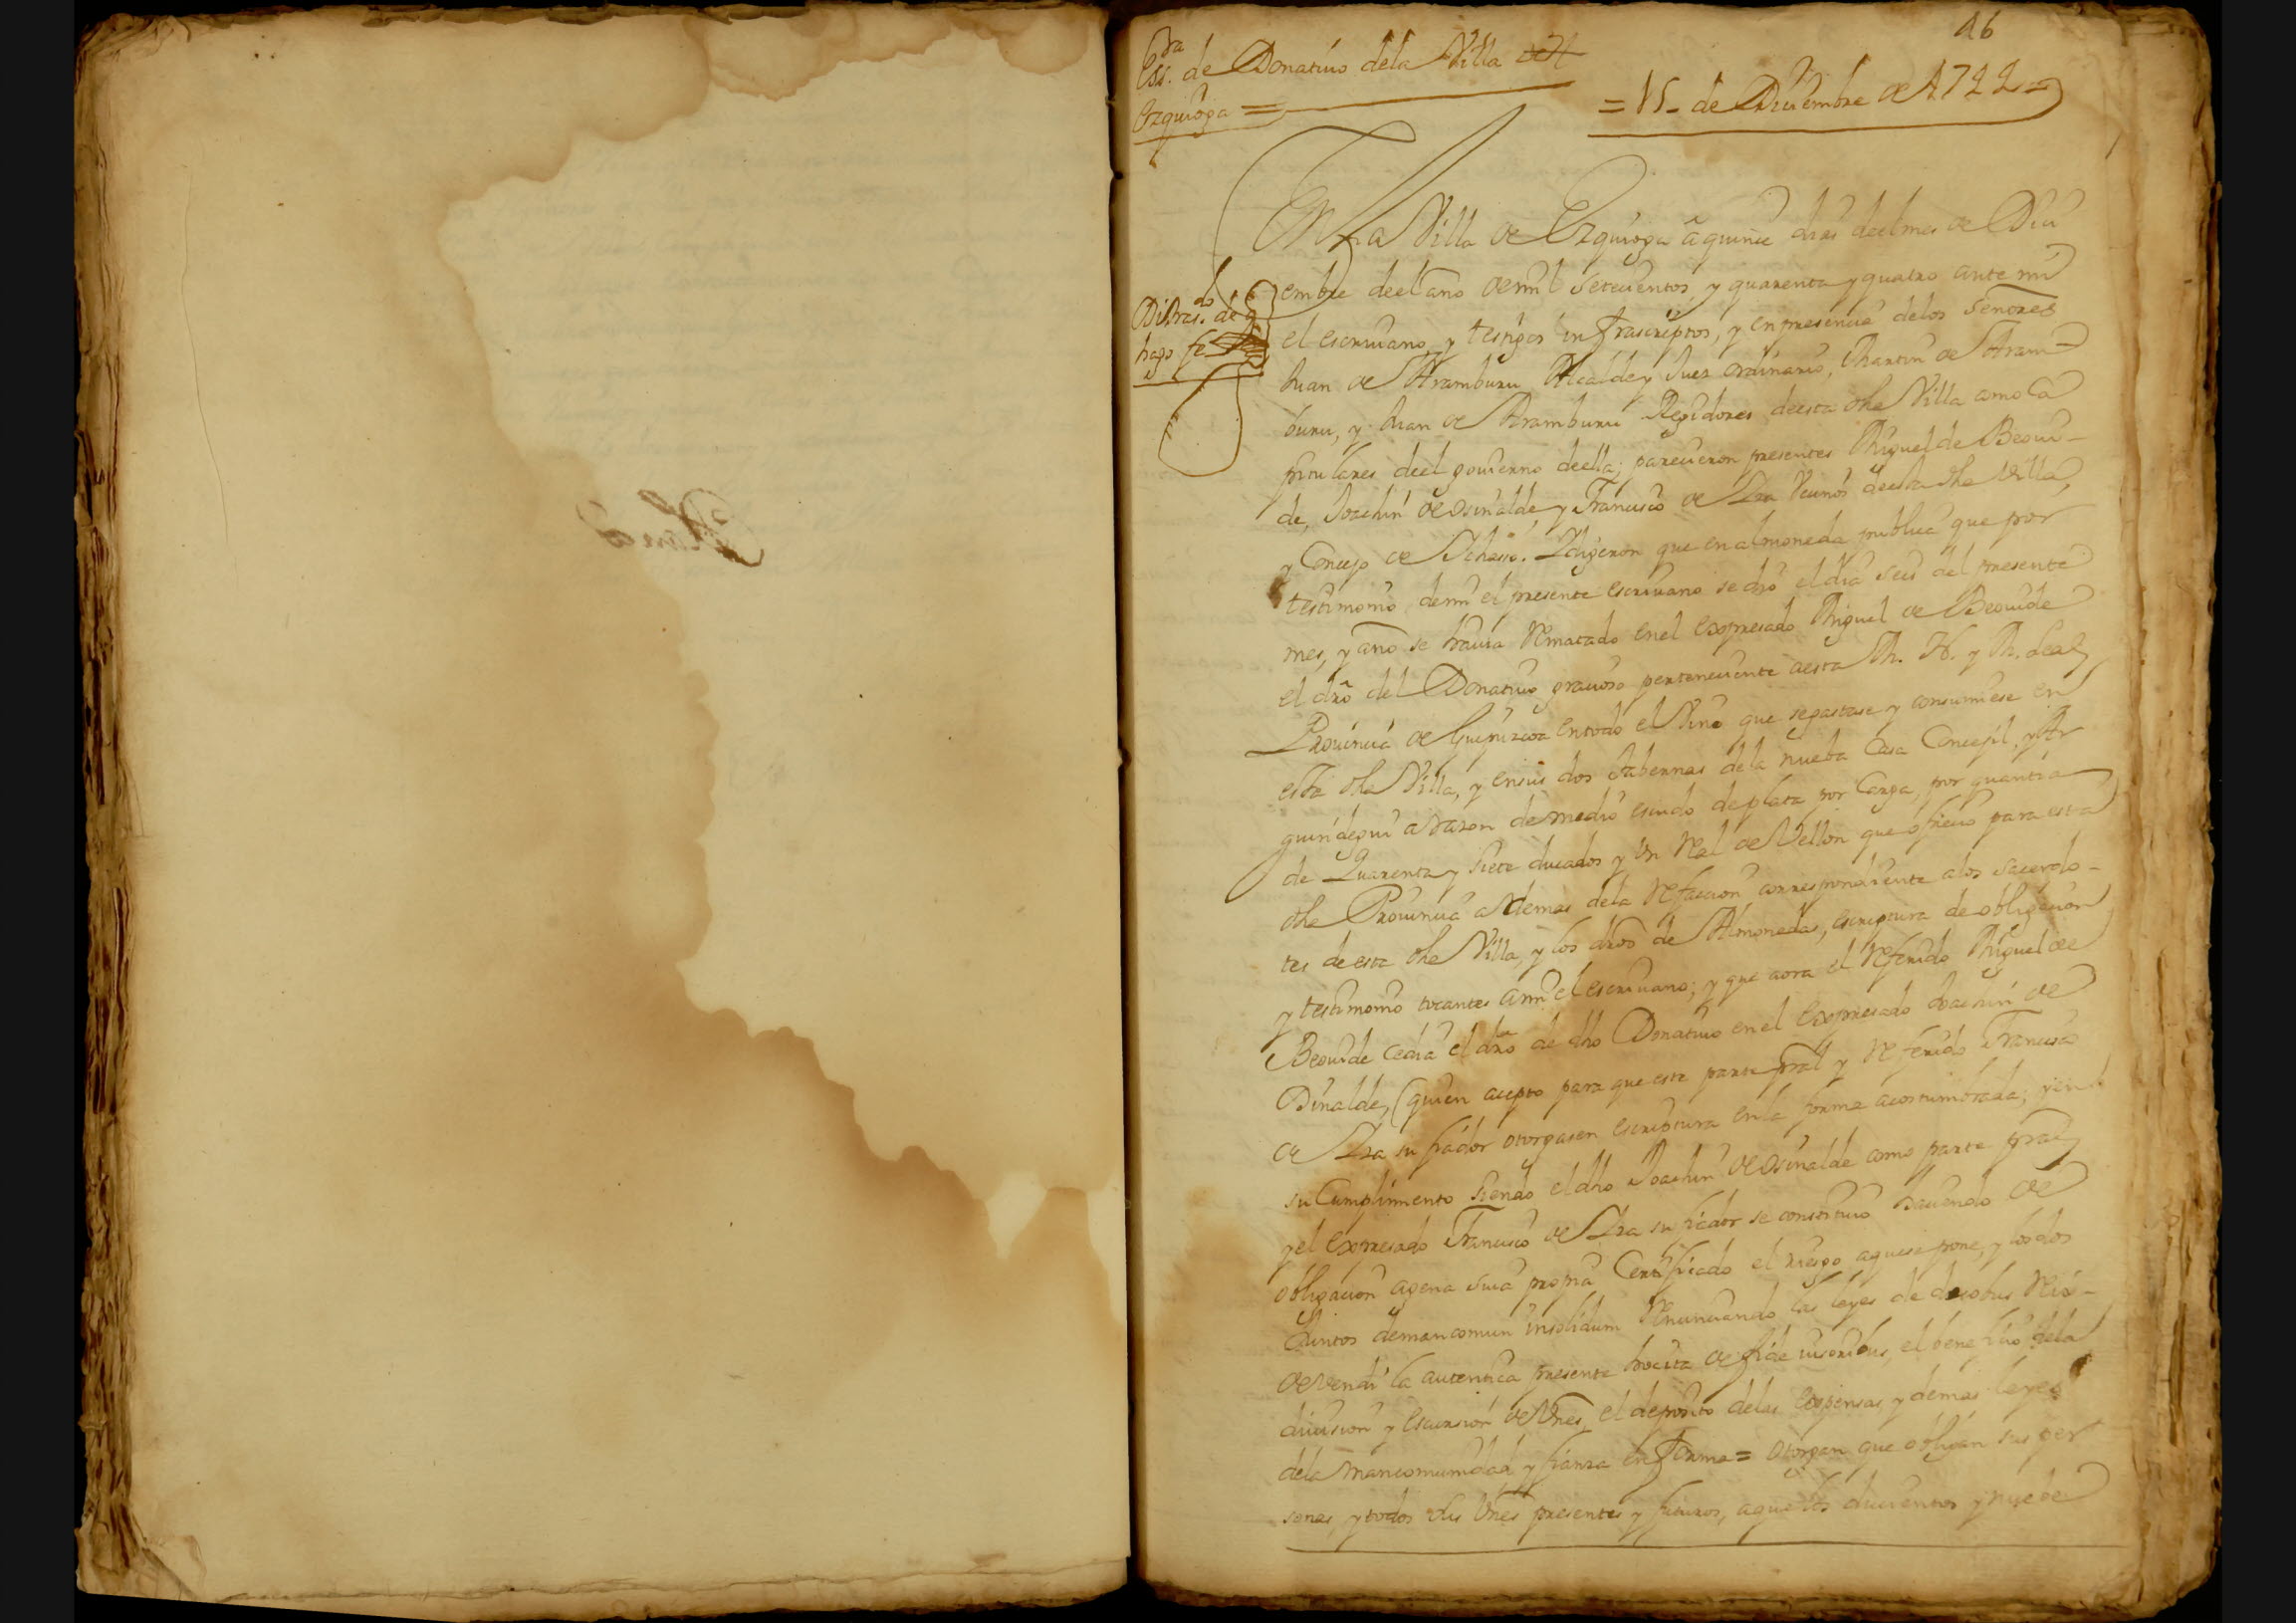 46
Essra. de Donativo dela Villa de
Ezquioga =
= 15 de Diciembre de 1744 =
En la Villa de Ezquioga â quince dias deel mes de Dici
embre deel año de mil setecientos, y quarenta y quatro ante mi
el escrivano, y testigos infrascriptos, y en presencia delos Señores
Di tras. de
hago fe
Juan de Aramburu Alcalde y Juez ordinario, Martin de Aram-
buru, y Juan de Aramburu Regidores deesta dha Villa como Ca
pitulares deel govierno deella; parecieron presentes Miguel de Beovi-
de, Joachin de Osinalde y Francisco de Lra Vecinos deesta dha Villa,
y Concejo de Ichasso. Y digeron que en almoneda publica que por
testimonio de mi el presente escrivano se dio el dia seis del presente
mes, y año se havia rematado en el expresado Miguel de Beovide
el dro del Donativo gracioso perteneciente a esta M. N. y M. Leal
Provincia de Guipuzcoa en todo el Vino que se gastase y consumiese en
esta dha Villa, y en sus dos tabernas dela nueba Casa Concejil, y Ar
guindegui a razon de medio escudo de plata por Carga, por quantia
de Quarenta y siete ducados y un Real de Vellon que ofrecio para esta
dha Provincia a demas dela Refaccion correspondiente a los sacerdo-
tes de esta dha Villa, y los dros de Almonedas, escriptura de obligacion
y testimonio tocantes a mi el escrivano; y que aora el referido Miguel de
Beovide cedia el dro de dho Donativo en el expresado Joachin de
Osinalde, (quien acepto para que este parte pral y referido Francisco
de Lra su fiador otorgasen escriptura en la forma acostumbrada; y en
su Cumplimiento siendo el dho Joachin de Osinalde como parte pral
y el expresado Francisco de Lra su fiador se constituio haciendo de
obligacion agena suia propia Certificado el riesgo a que se pone, y los dos
Juntos de mancomun insolidum renunciando las leyes de duobus Reis
devendi la autentica presente hocita de fide iusoribus, el beneficio dela
division y escursion de Vnes, el deposito delas expensas y demas leyes
dela mancomunidad y fianza en forma = otorgan que obligan sus per
sonas, y todos sus Vnes presentes y futuros, a que los ducientos y nuebe